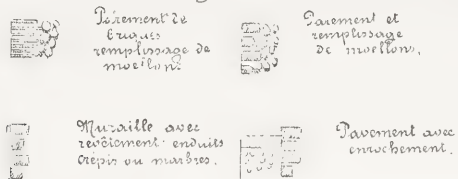 Parement de
briques
remplissage de
moellons
Parement et
remplissage
de moellons.
Muraille avec
revêtement enduits
crépis ou marbres.
Pavement avec
enrochement.